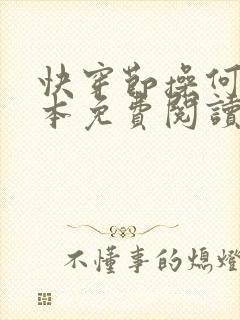 快穿節操何
本免費閱讀
不懂事的熄燈